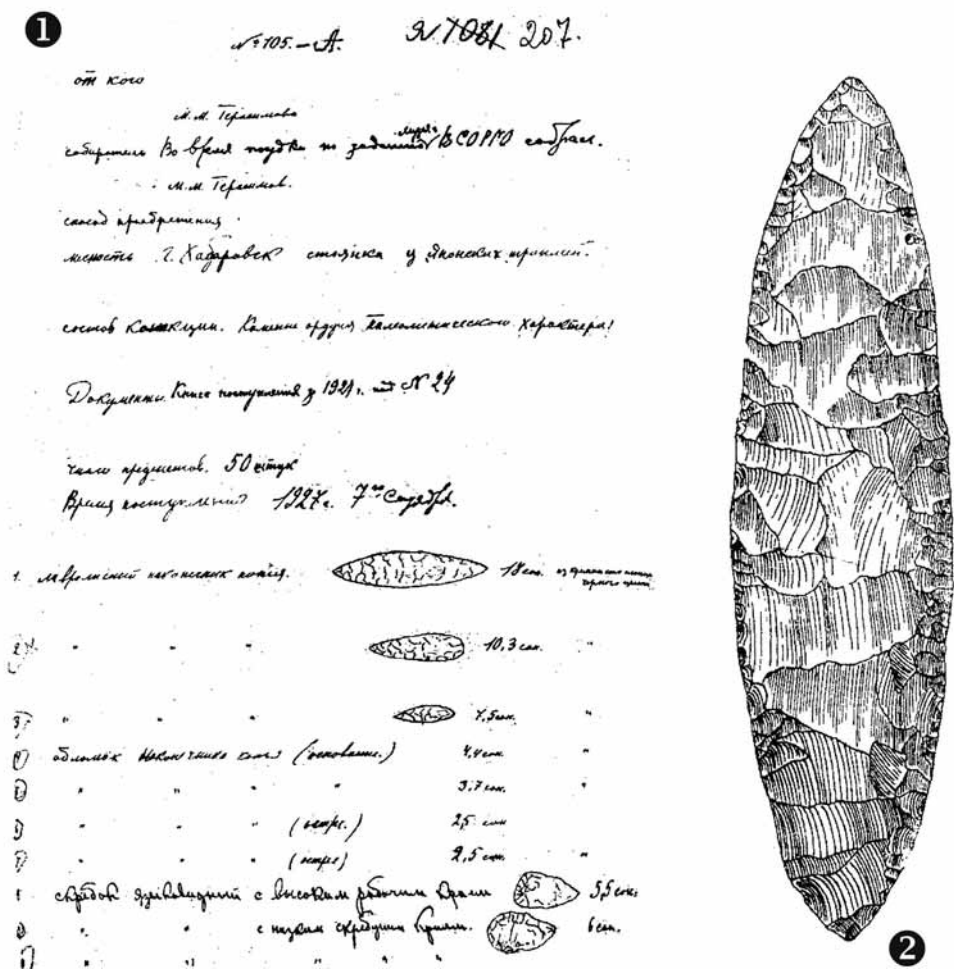 ❶
№ 105.-А. 207.
от кого
М.М. Герасимова
собиратель Во время поездки по заданию ВСОРГО собрал.
М.М. Герасимов.
способ приобретения.
местность г. Хабаровск стоянка у Японских
состав коллекции. Камен орудия палеолитического характера!
Документы. Книга поступления № 24
число предметов. 50 штук
Время поступления 1927г. 7го
1. лавролистный наконечник копья. 18 сан.
2 " " " 10,3 сан. "
3 " " " 7,5 сан. "
обломок наконечника копья (основание.) 4,4 сан. "
" " " " 3,7 сан. "
" " " (острие.) 2,5 сан "
" " " (острие) 2,5 сан. "
скребок языковидный с высоким рабочим краем 5,5 сан.
" " с низким скребущим краем. 6 сан.
" " " " "
❷